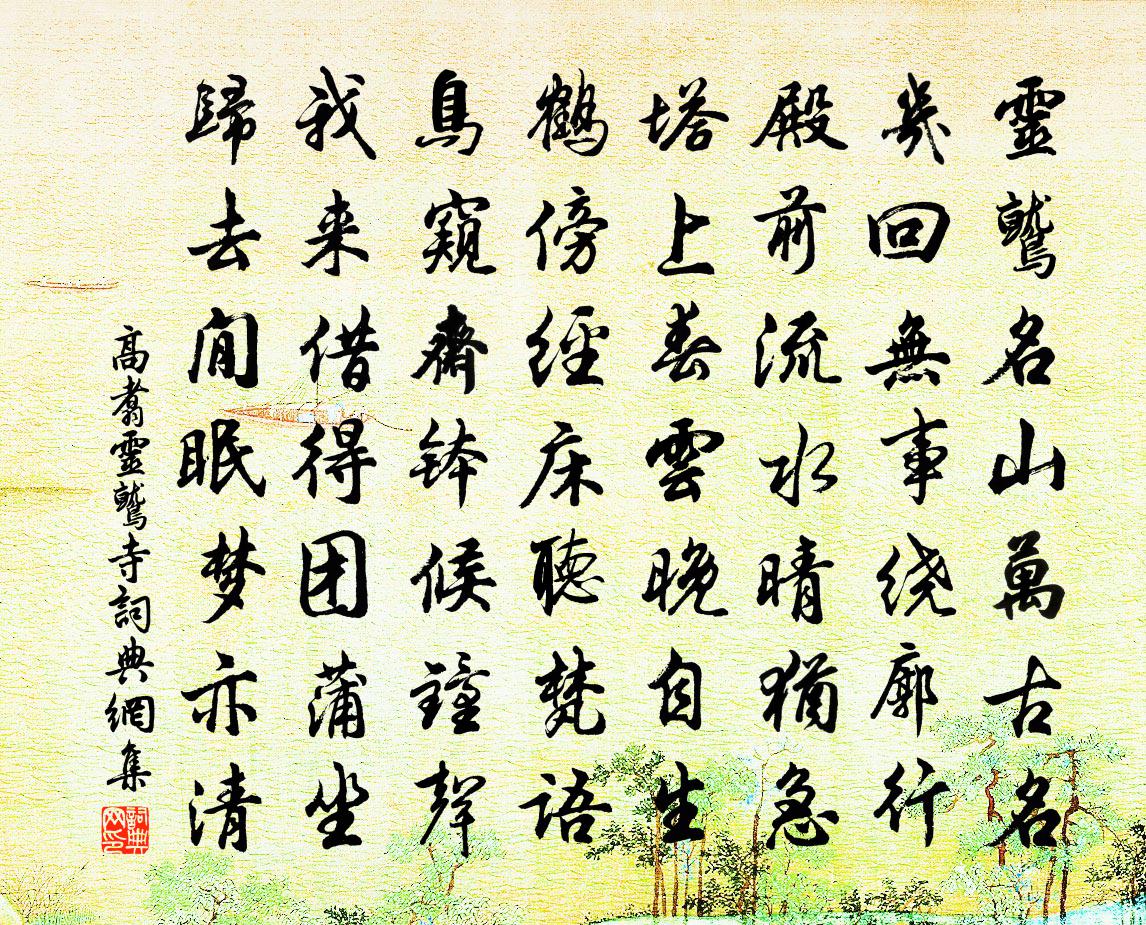 靈鷲名山萬古名
幾回無事绕廓行
殿前流水晴猶急
塔上春雲晚自生
鶴傍經床聽梵语
鳥窺齋钵候鐘聲
我来借得团蒲坐
歸去閒眠梦亦清
高翥靈鷲寺詞典網集
詞典网印